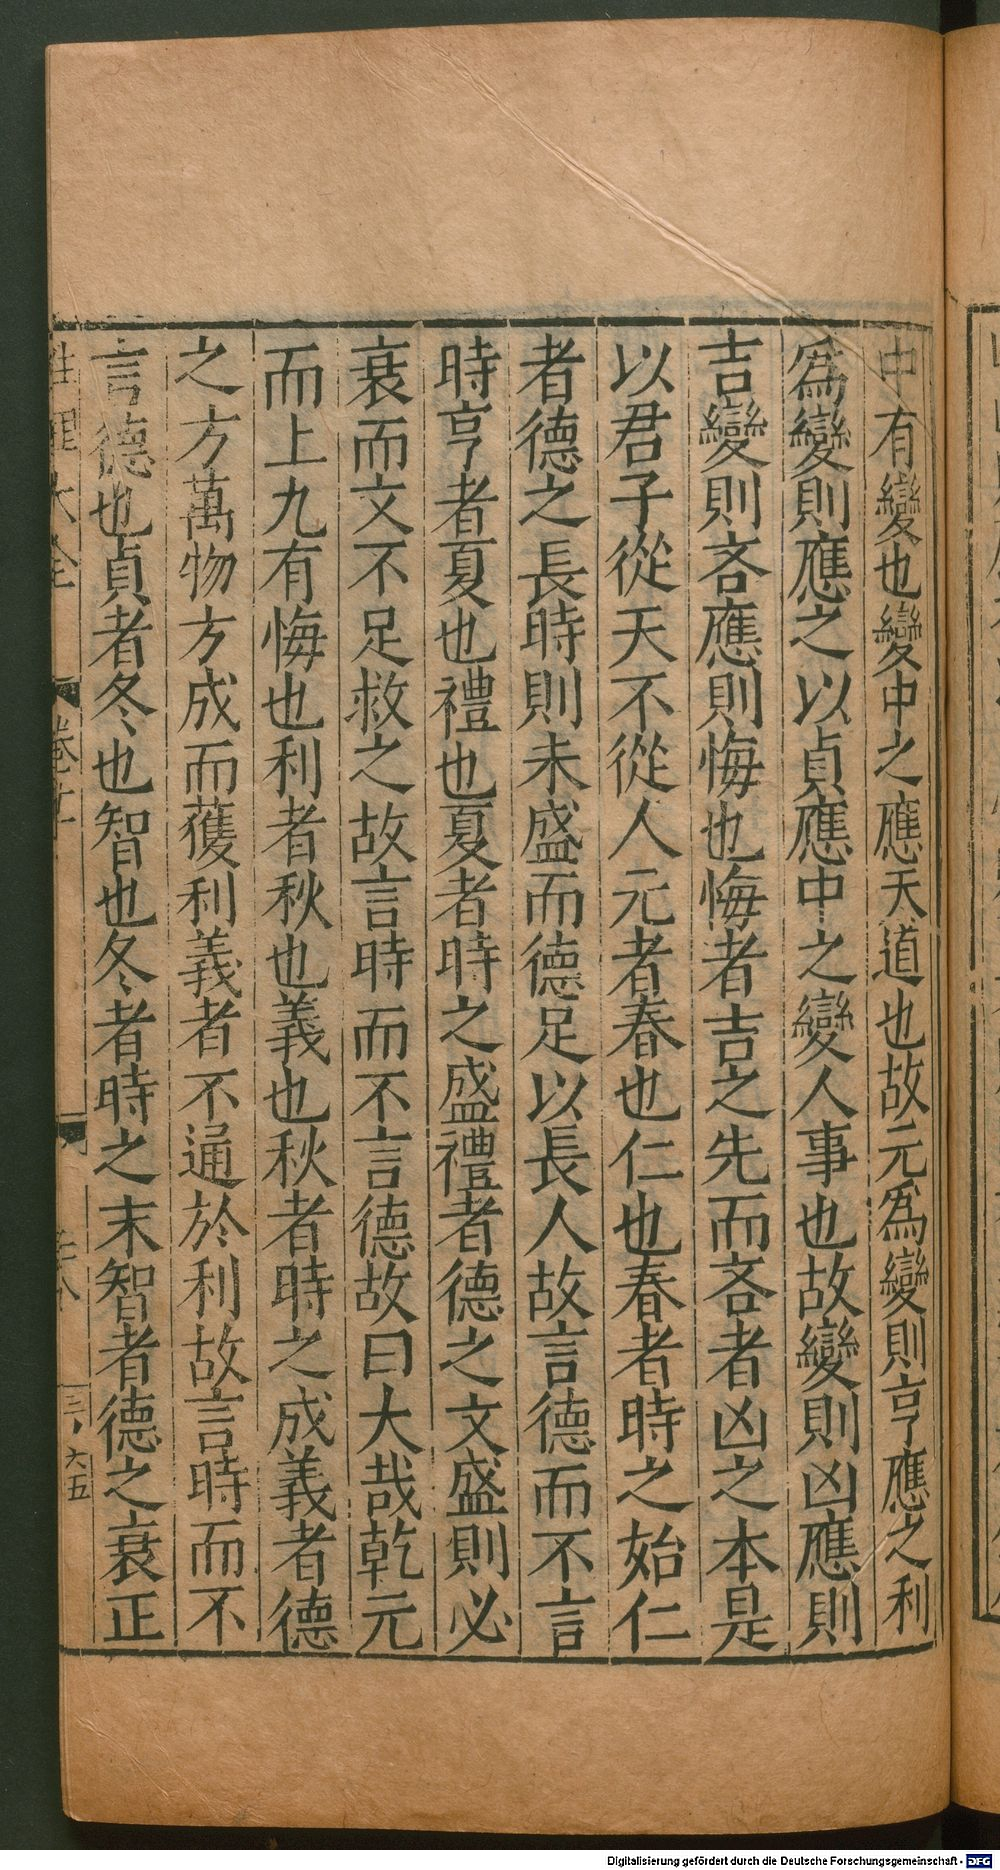 中有變也變中之應天道也故元爲變則亨應之利
爲變則應之以貞應中之變人事也故變則凶應則
吉變則吝應則悔也悔者吉之先而吝者凶之本是
以君子從天不從人元者春也仁也春者時之始仁
者德之長時則未盛而德足以長人故言德而不言
時亨者夏也禮也夏者時之盛禮者德之文盛則必
衰而文不足救之故言時而不言德故曰大哉乾元
而上九有悔也利者秋也義也秋者時之成義者德
之方萬物方成而獲利義者不通於利故言時而不
言德也貞者冬也智也冬者時之末智者德之衰正
性理大全
卷十
三丶六五
Digitalisierung gefördert durch die Deutsche Forschungsgemeinschaft - DFG